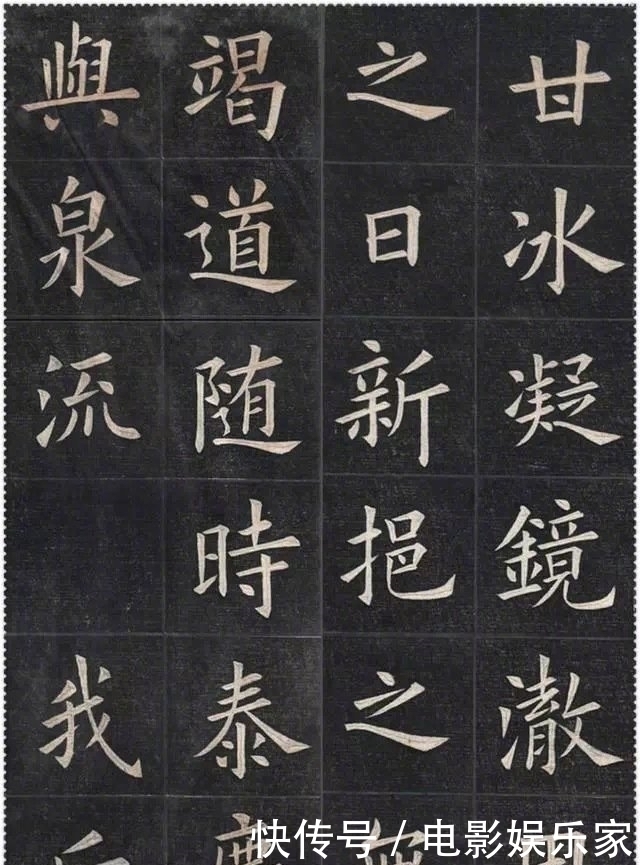 甘冰凝鏡澈
之日新挹之
竭道随時泰
與泉流我
快传号 / 电影娱乐家